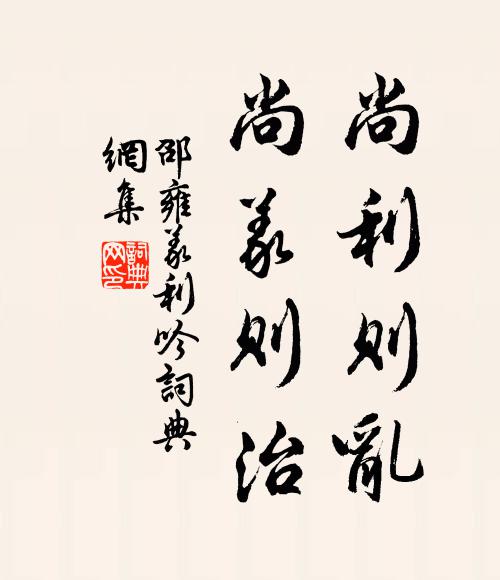 尚利則亂
尚義則治
邵雍義利吟詞典
網集
詞典
网印